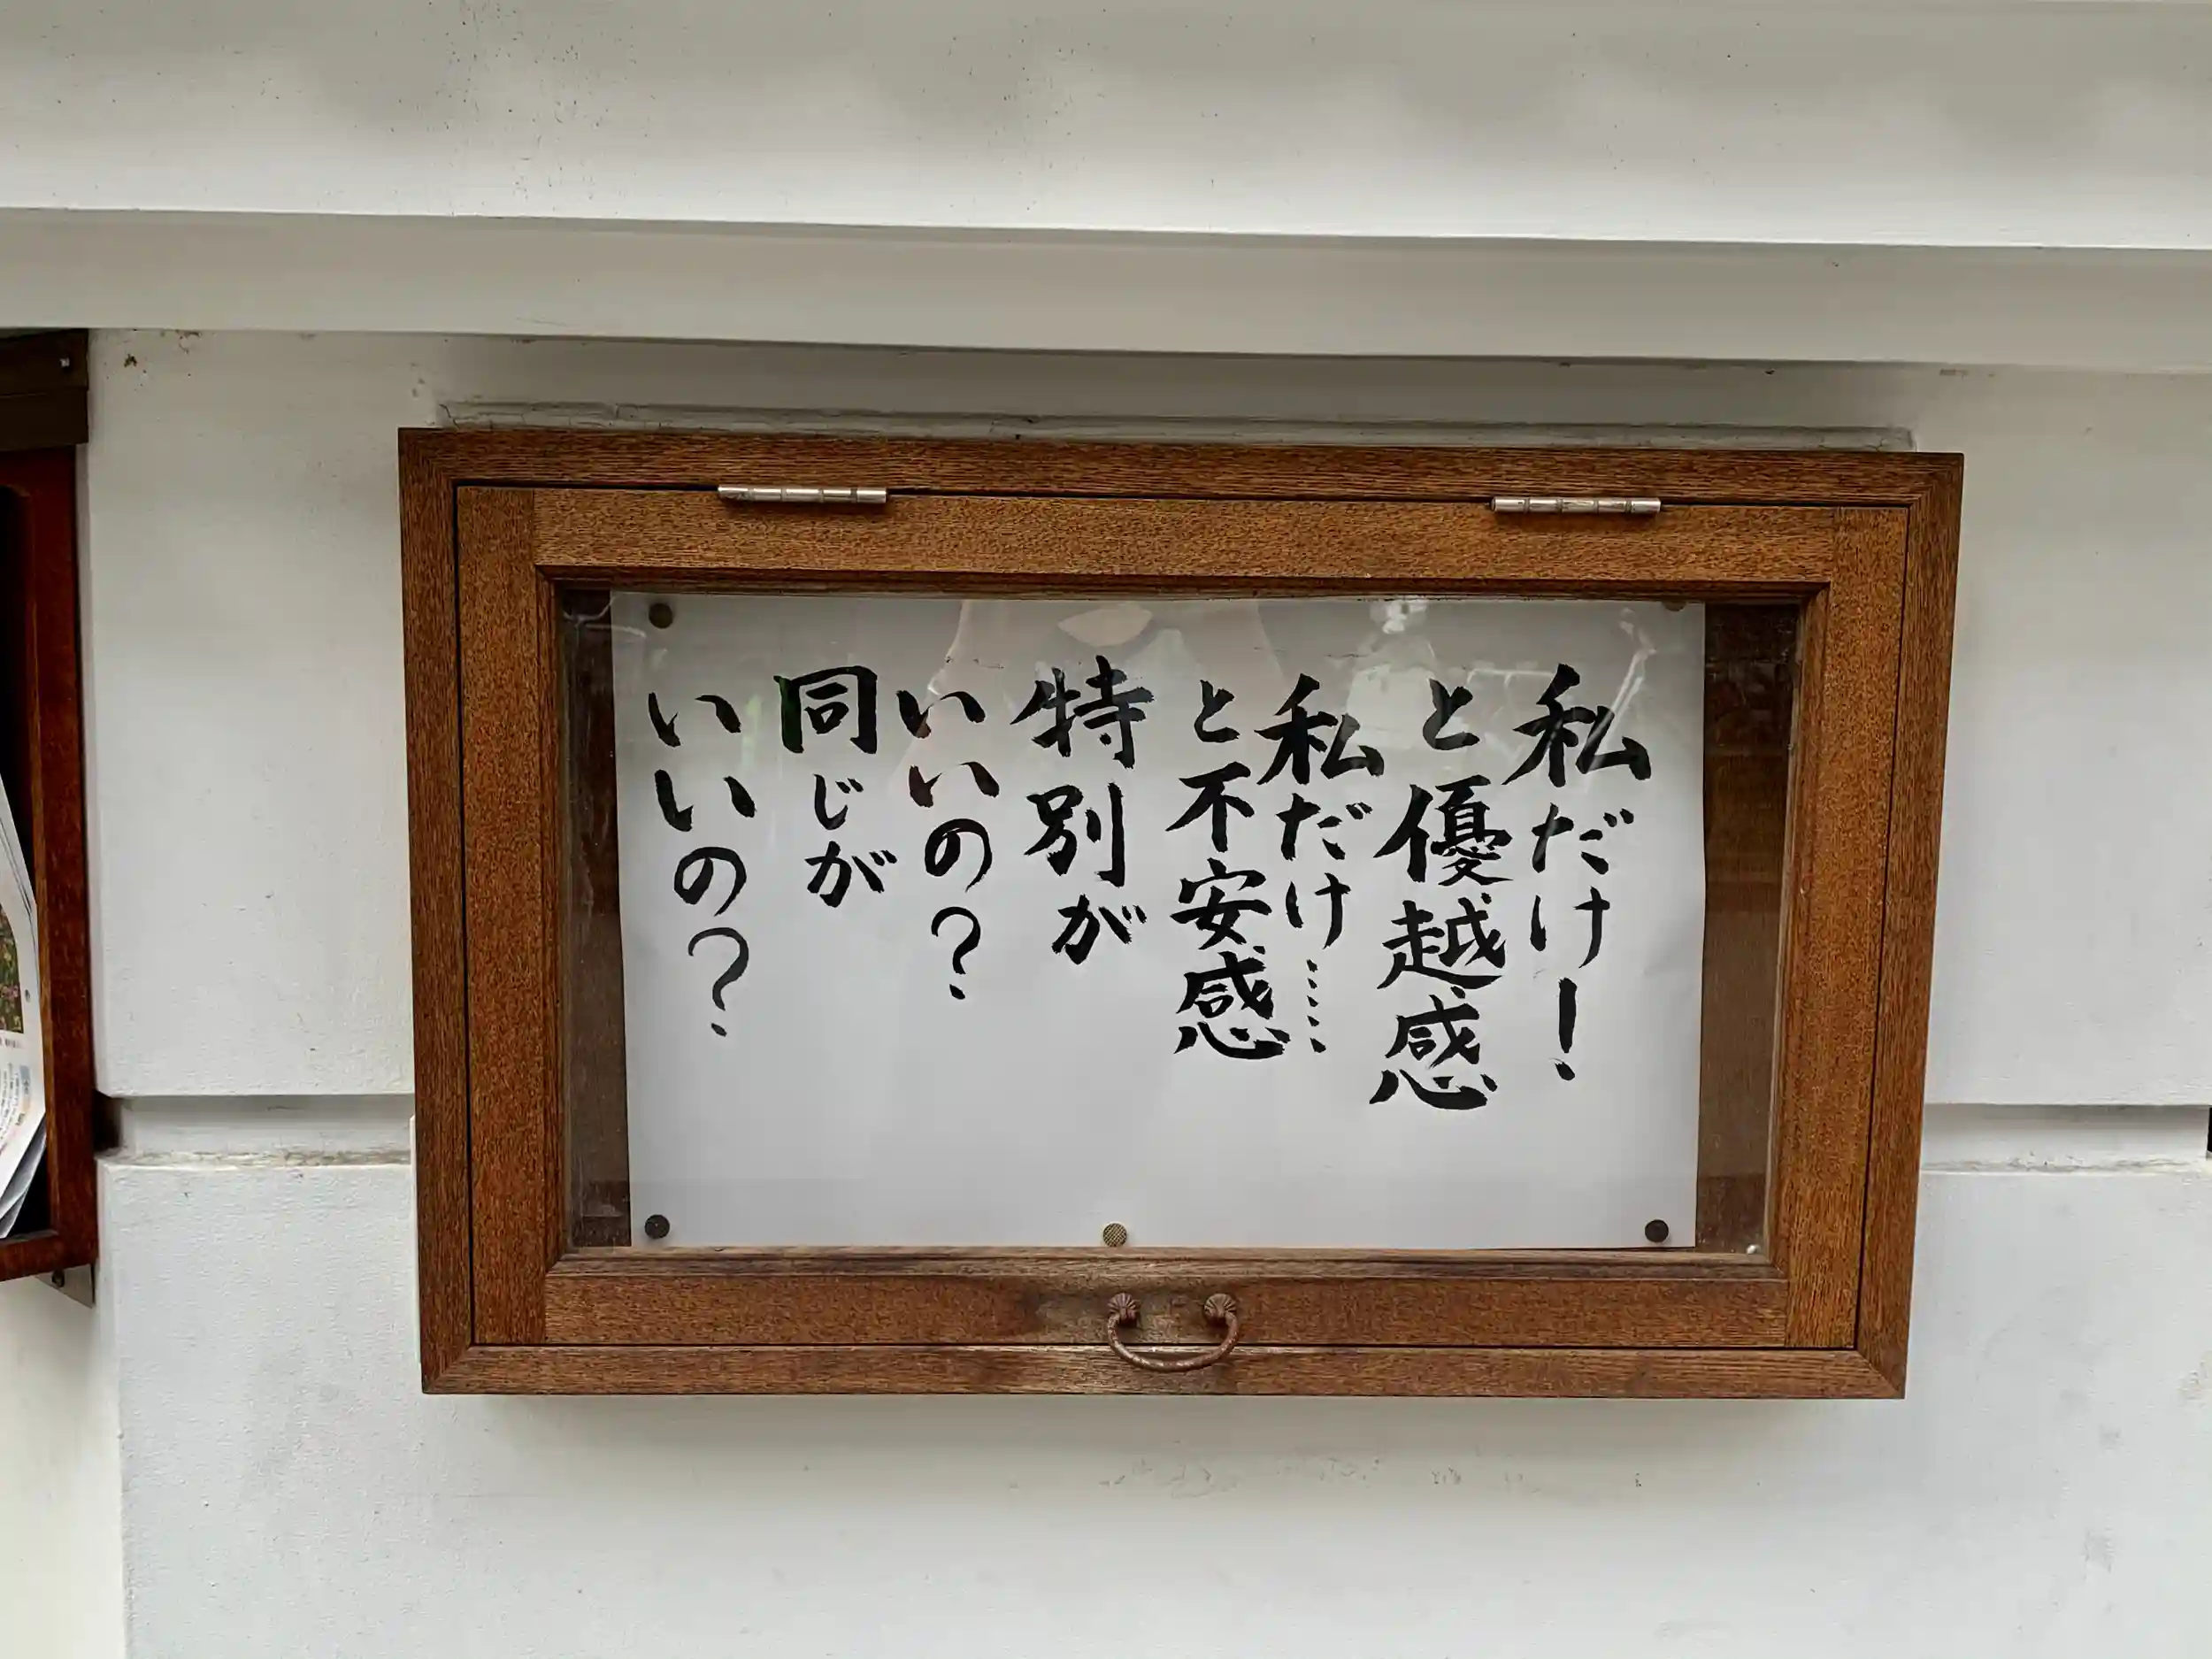 私だけ！
と優越感
私だけ……
と不安感
特別が
いいの？
同じが
いいの？